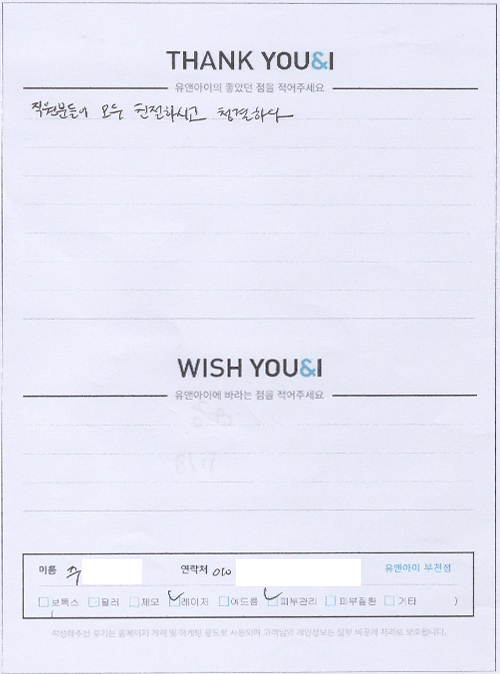 THANK YOU&I
유앤아이의 좋았던 점을 적어주세요
직원분들이 모두 친절하시고 청결하다
WISH YOU&I
유앤아이에 바라는 점을 적어주세요
이름 주 연락처 010 유앤아이 부천점
보톡스 필러 제모 레이저 여드름 피부관리 피부질환 기타 )
작성해주신 후기는 홈페이지 게재 및 마케팅 용도로 사용되며 고객님의 개인정보는 일부 비공개 처리로 보호됩니다.